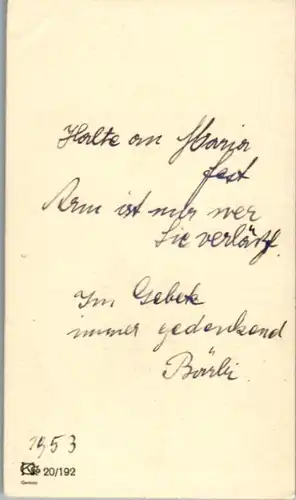 Halte an Maria
fest
Arm ist nur wer
Sie verläßt.
Im Gebete
immer gedenkend
Bärbi
1953
20/192
Germany